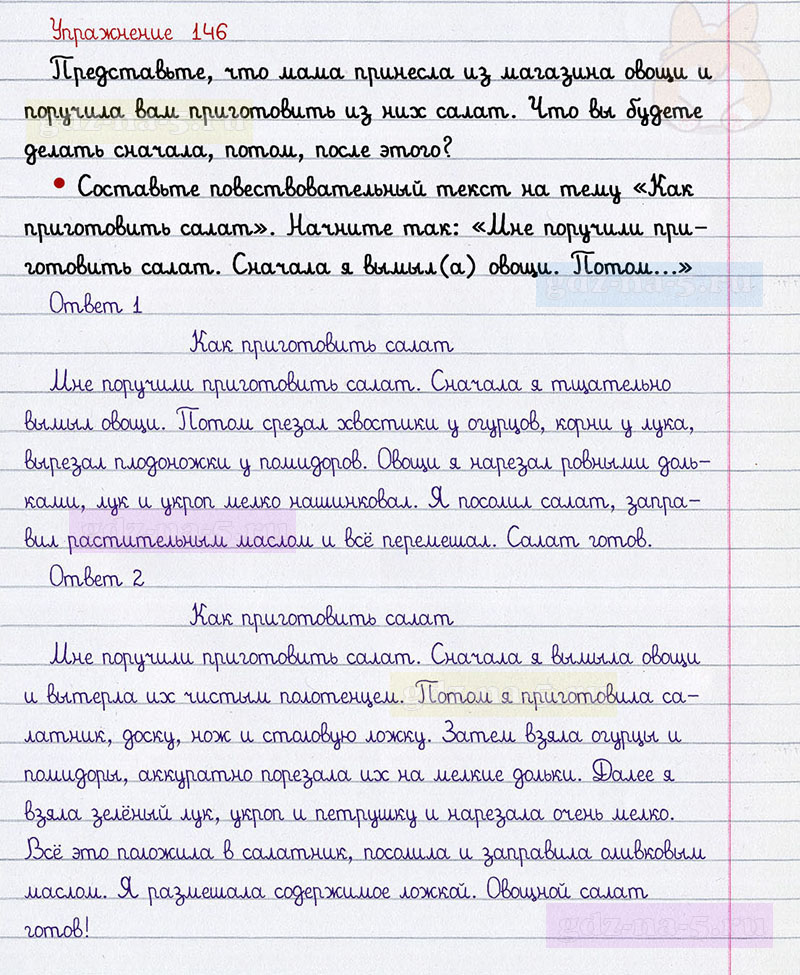 Упражнение 146
Представьте, что мама принесла из магазина овощи и
поручила вам приготовить из них салат. Что вы будете
делать сначала, потом, после этого?
• Составьте повествовательный текст на тему «Как
приготовить салат». Начните так: «Мне поручили при-
готовить салат. Сначала я вымыл(а) овощи. Потом...»
gdz-na-5.ru
gdz-na-5.ru
Ответ 1
Как приготовить салат
Мне поручили приготовить салат. Сначала я тщательно
вымыл овощи. Потом срезал хвостики у огурцов, корни у лука,
вырезал плодоножки у помидоров. Овощи я нарезал ровными доль-
ками, лук и укроп мелко нашинковал. Я посолил салат, запра-
вил растительным маслом и всё перемешал. Салат готов.
gdz-na-5.ru
Ответ 2
Как приготовить салат
Мне поручили приготовить салат. Сначала я вымыла овощи
и вытерла их чистым полотенцем. Потом я приготовила са-
gdz-na-5.ru
латник, доску, нож и столовую ложку. Затем взяла огурцы и
помидоры, аккуратно порезала их на мелкие дольки. Далее я
взяла зелёный лук, укроп и петрушку и нарезала очень мелко.
Всё это положила в салатник, посолила и заправила оливковым
маслом. Я размешала содержимое ложкой. Овощной салат
готов!
gdz-na-5.ru